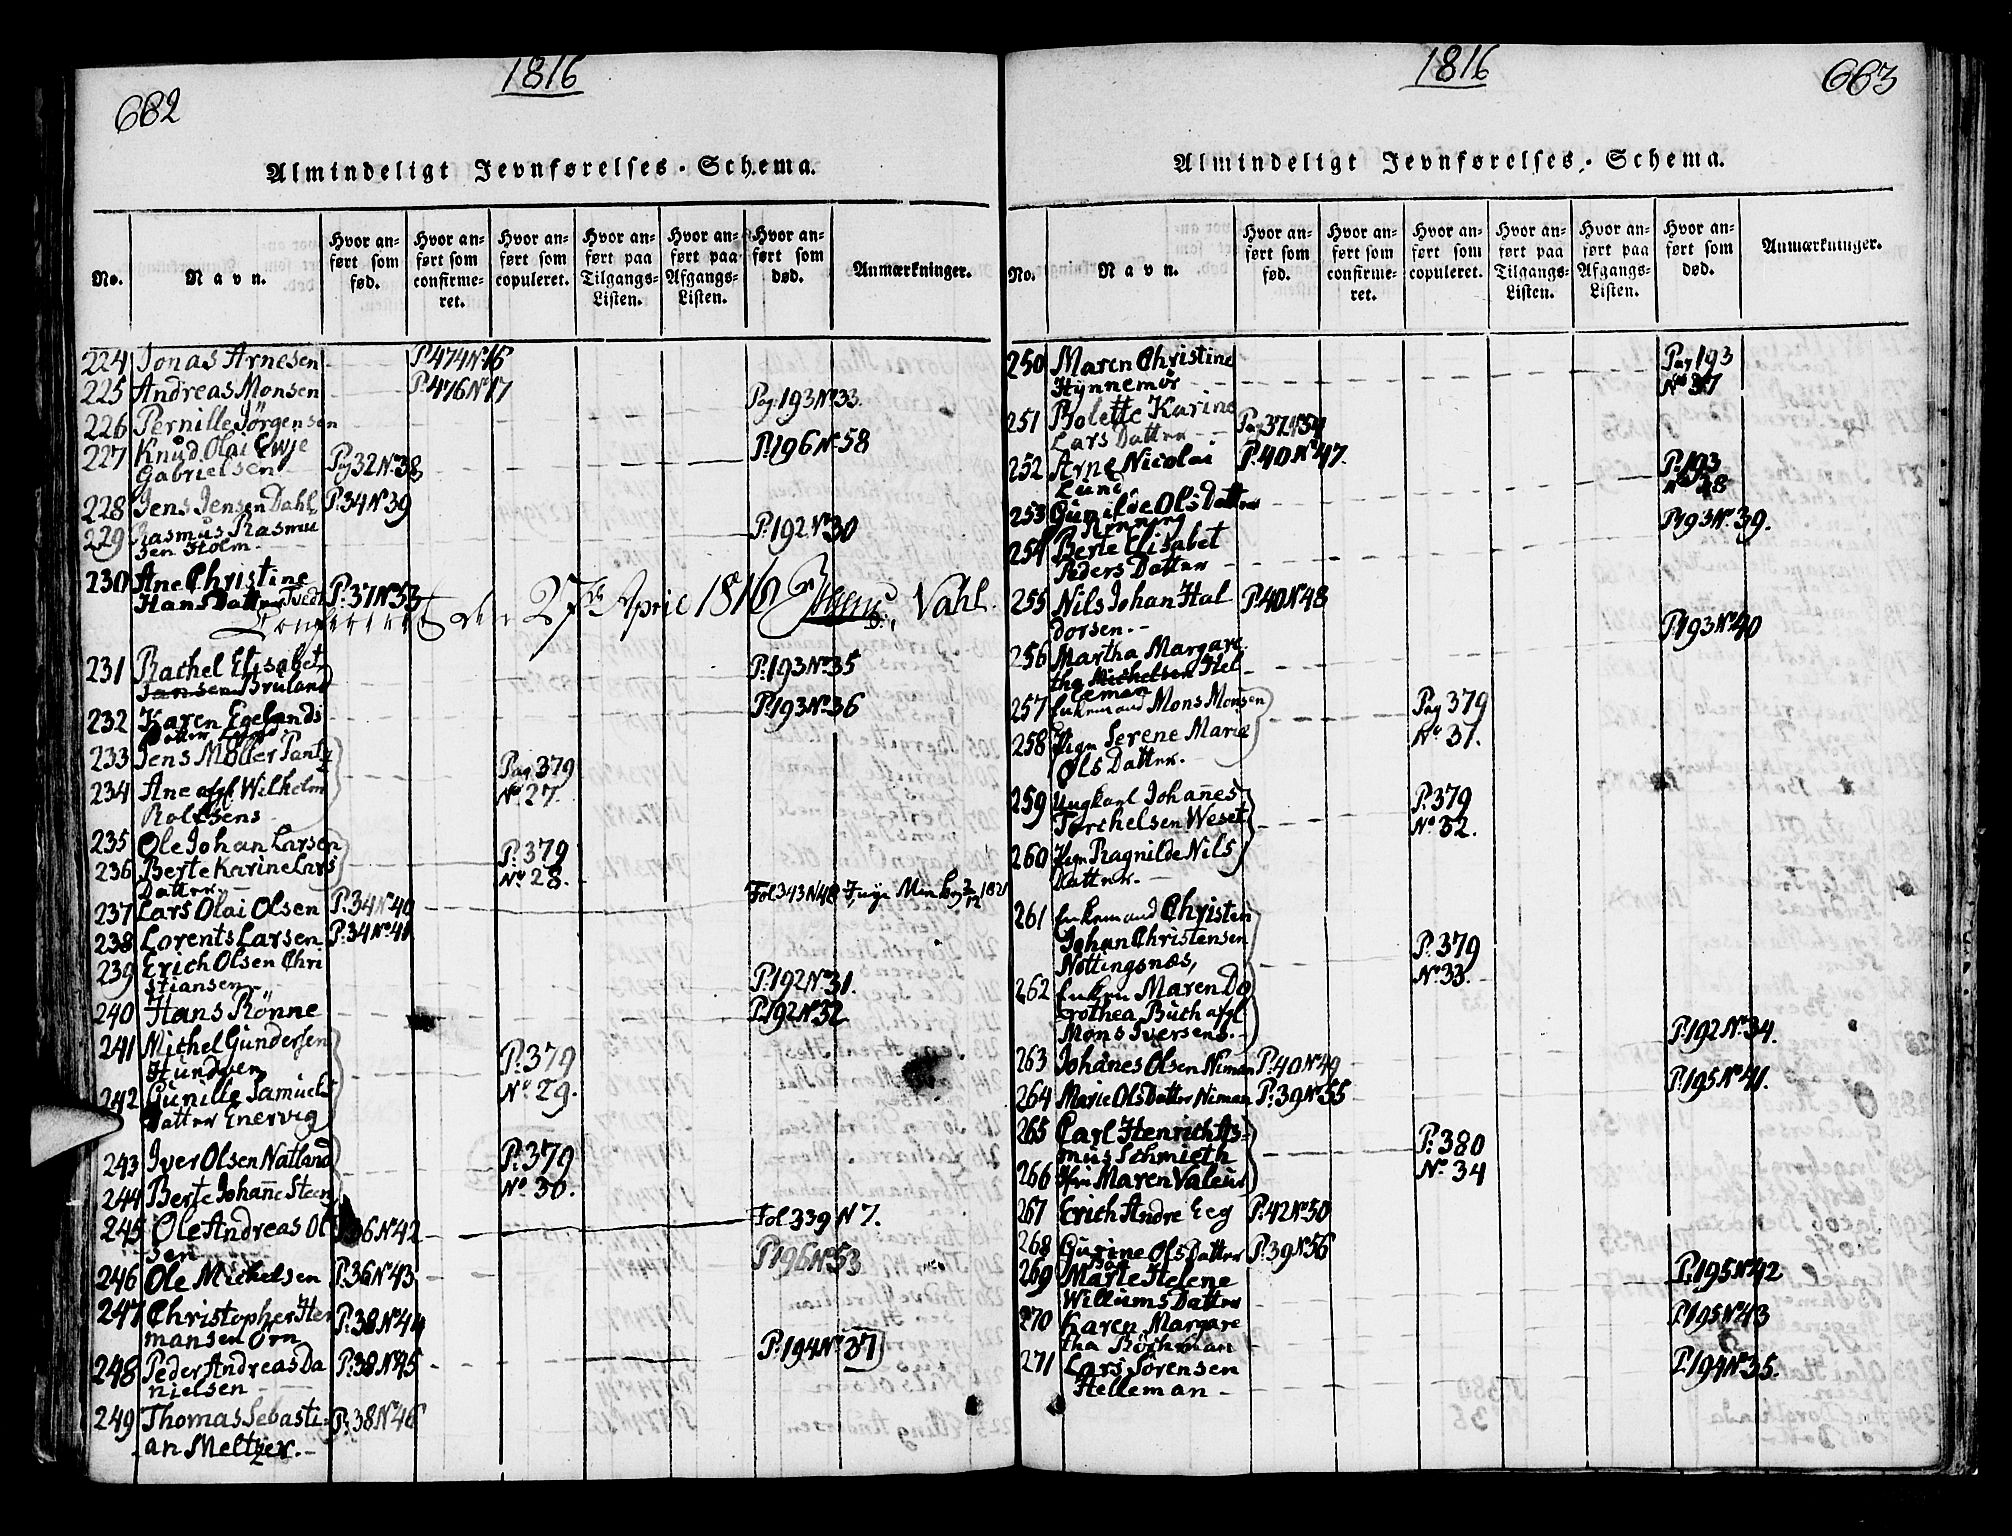 682
1816
Almindeligt Jevnførelses-Schema.
No.
Navn.
Hvor anført som fød.
Hvor anført som confirmeret.
Hvor anført som copuleret.
Hvor anført paa Tilgangs-Listen.
Hvor anført paa Afgangs-Listen.
Hvor anført som død.
Anmærkninger.
224 Jonas Arnesen P. 474 No 16
225 Andreas Monsen P. 476 No 17
226 Pernille Jörgensen Pag. 193 No 33.
227 Knud Olai Ewje P. 196 No 58
Gabrielsen Pag 32 No 38
228 Jens Jensen Dahl P. 34 No 39
229 Rasmus Rasmu
sen Holm P. 192 No 30
230 Ane Christine
Hans Datter Tvedt P. 37 No 53
Confereret den 27de April 1816 Vahl.
231 Rachel Elisabet P. 193 No 35
Jansen Bruland
232 Karen Egelands P. 193 No 36
Datter
233 Jens Möller Pantz
Pag 379
234 Ane afgl Wilhelm No 27.
Rolfsens
235 Ole Johan Larsen
P. 379
236 Berte Karine Lars No 28.
Datter
237 Lars Olai Olsen P. 34 No 40 Fol 343 N 48
238 Lorents Larsen P. 34 No 41
239 Erich Olsen Chri
stiansen P. 192 No 31.
240 Hans Rönne P. 192 No 32
241 Michel Gundersen
Hundven P. 379
242 Gunille Samuels No 29.
Datter Enervig
243 Iver Olsen Natland P. 379
244 Berte Johan̄e Steen No 30.
245 Ole Andreas Ol P. 36 No 42 Fol 339 N 7.
sen P. 196 No 53
246 Ole Michelsen P. 36 No 43
247 Christopher Her P. 38 No 44
mansen Örn P. 194 No 37
248 Peder Andreas Da P. 38 No 45
nielsen
249 Thomas Sebasti- P. 38 No 46
an Meltzer.
1816
663
Almindeligt Jevnførelses-Schema.
No.
Navn.
Hvor anført som fød.
Hvor anført som confirmeret.
Hvor anført som copuleret.
Hvor anført paa Tilgangs-Listen.
Hvor anført paa Afgangs-Listen.
Hvor anført som død.
Anmærkninger.
250 Maren Christine Pag 193
Hynnemör No 37
251 Bolette Karine
Lars Datter Pag 37 No 54
252 Arne Nicolai P. 40 No 47. P. 193
Lund No 38
253 Gunilde Ols Datter
Rönning P. 193 No 39.
254 Berte Elisabet
Peders Datter
255 Nils Johan Hal P. 40 No 48
dorsen. P. 193 No 40
256 Martha Margare
tha Michelsen Hel
leman
257 Enkemand Mons Monsen Pag 379
258 Pigen Serene Marie No 31.
Ols Datter.
259 Ungkarl Johan̄es P. 379
Torchelsen Weset No 32.
260 Pigen Ragnilde Nils
Datter.
261 Enkemand Christen
Johan Christensen P. 379
Nottingsnæs, No 33.
262 Enken Maren Do
rothea Buch afgl
Mons Iversens. P. 192 No 34.
263 Johan̄es Olsen Niman P. 40 No 49
264 Marie Ols Datter Niman P. 39 No 55 P. 195 No 41.
265 Carl Henrich As-
mus Schmieth P. 380
266 Maren Valeur No 34
267 Erich Andre Eeg P. 42 No 50
268 Gurine Ols Datter P. 39 No 56
269 Marie Helene P. 195 No 42
Willums Datter
270 Karen Margare P. 195 No 43
tha Röthman
271 Lars Sörensen P. 194 No 35.
Helleman